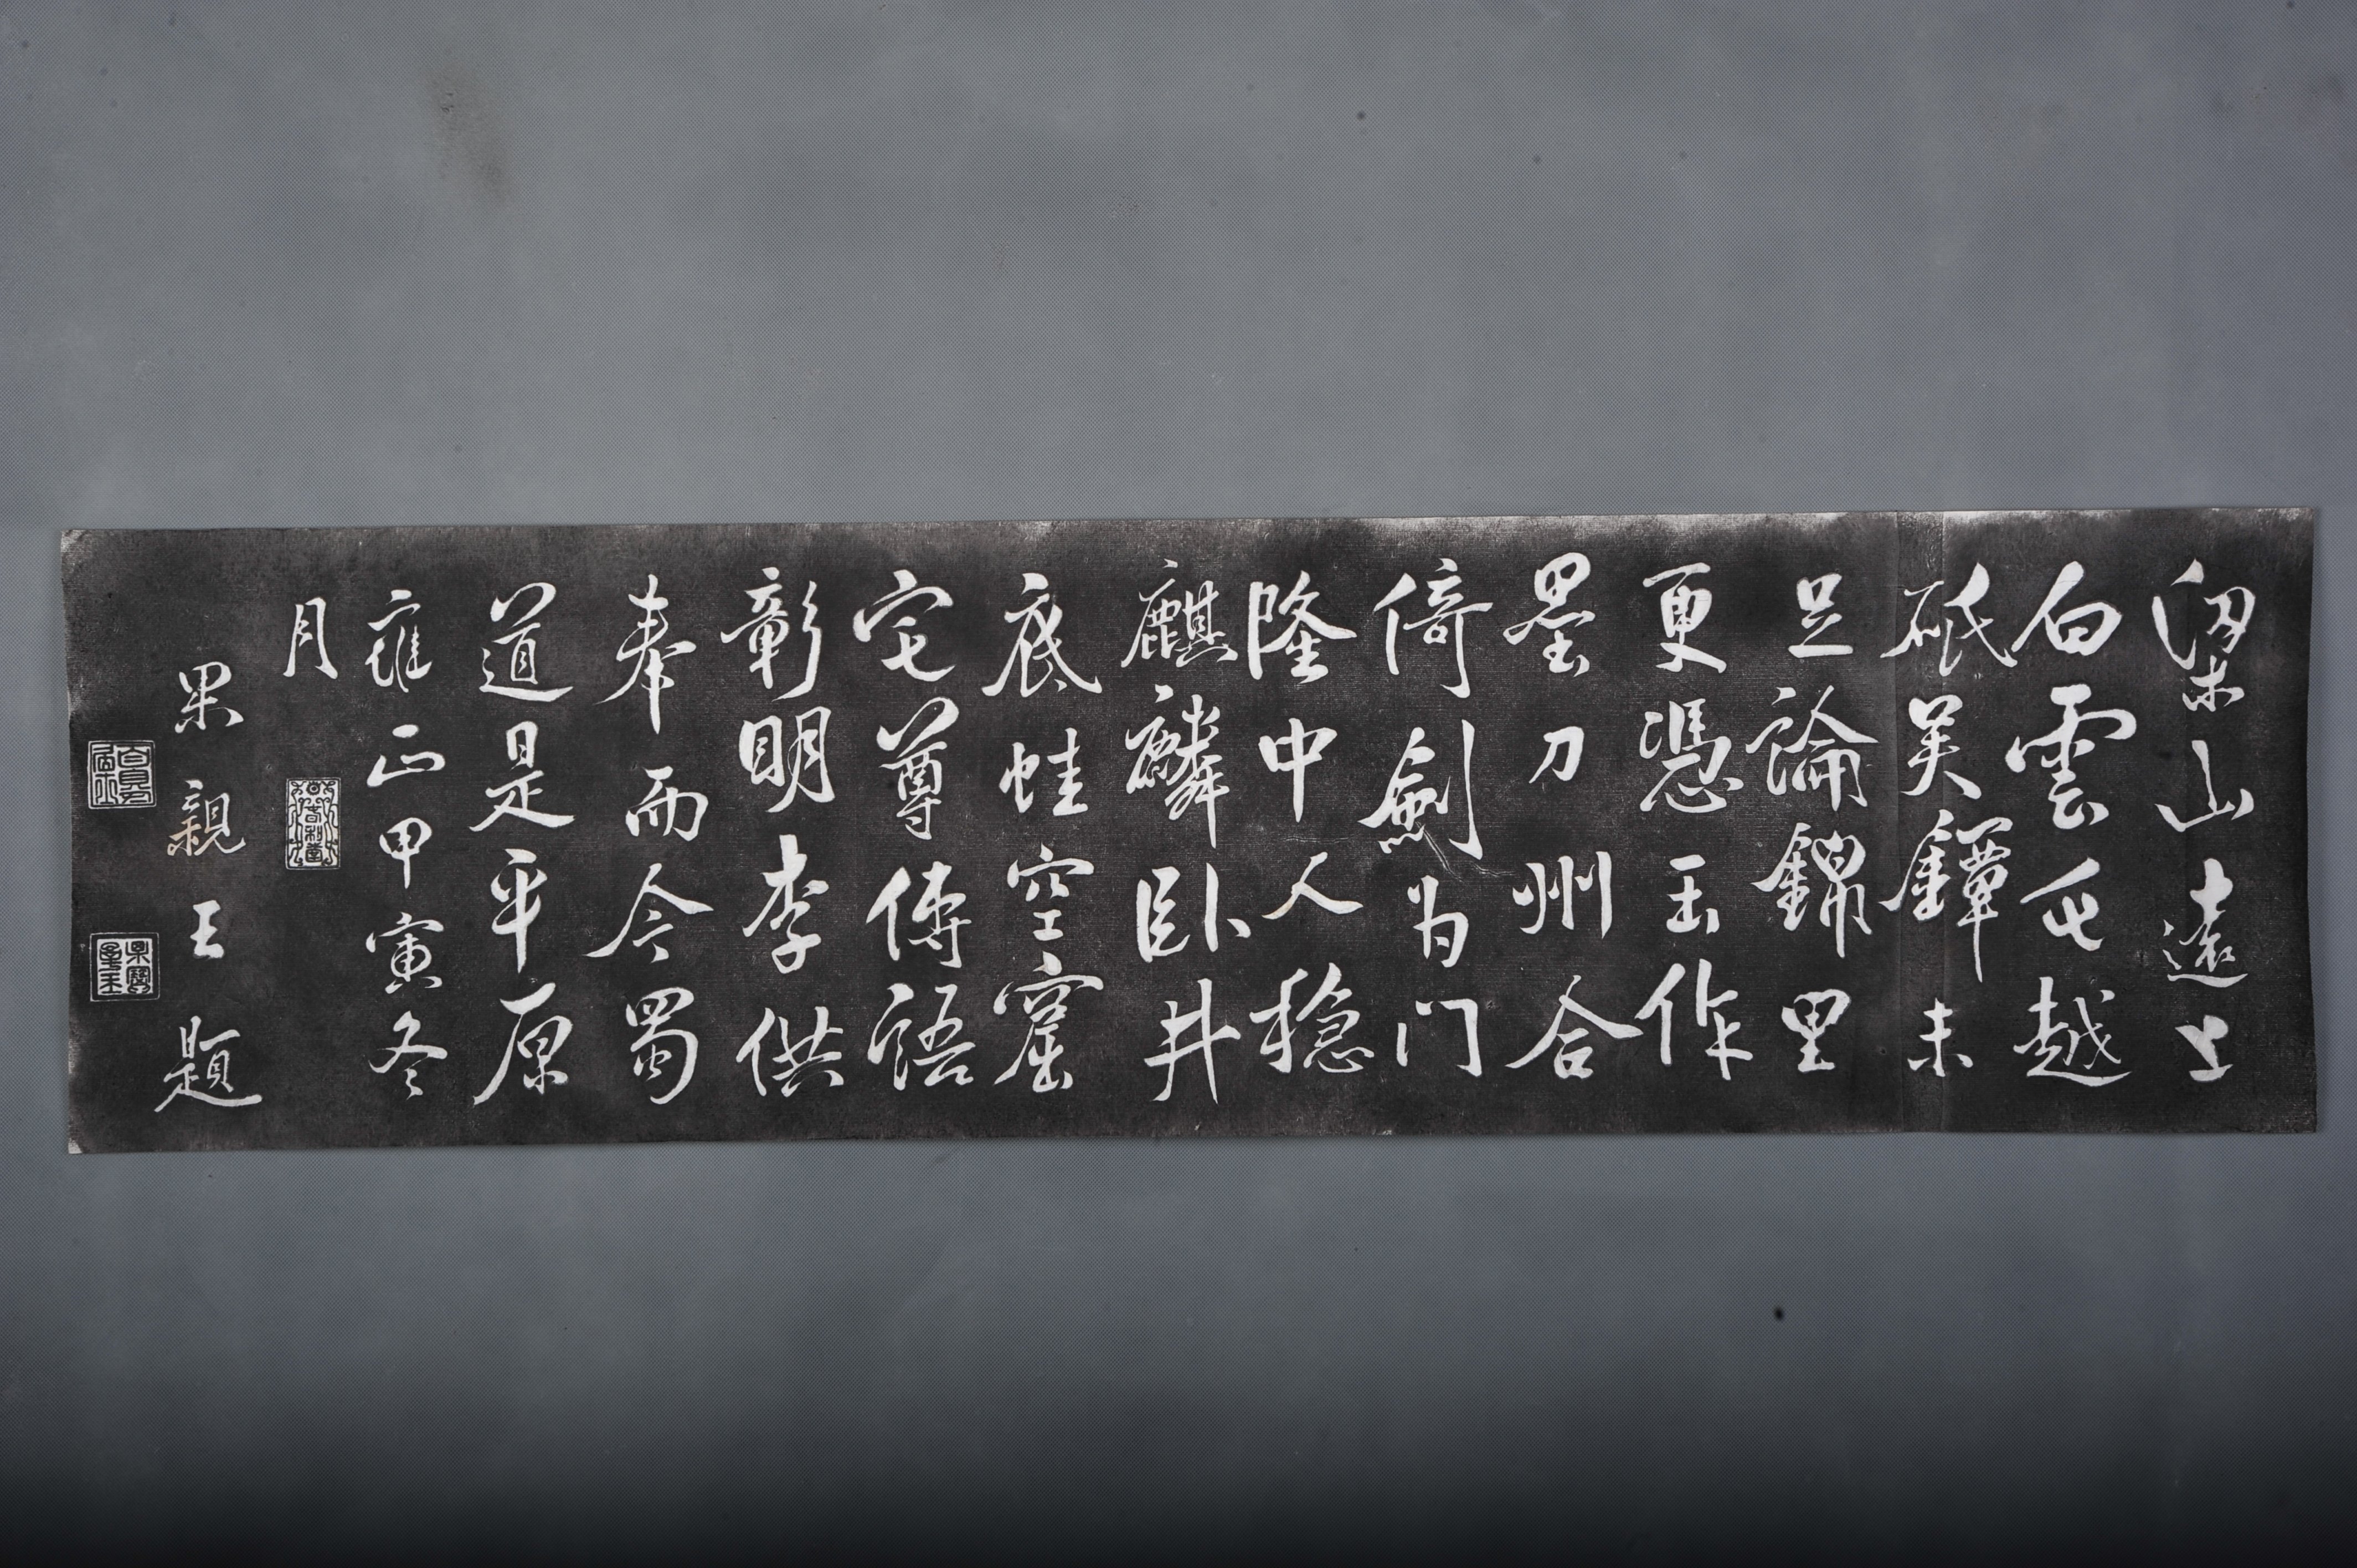 梁山遠上
白雲屯越
砥吴鐔未
足論錦里
更憑玉作
壘刀州合
倚劍为门
隆中人稳
麒麟卧井
底蛙空窟
宅尊傳語
彰明李供
奉而今蜀
道是平原
雍正甲寅冬
月
果親王題